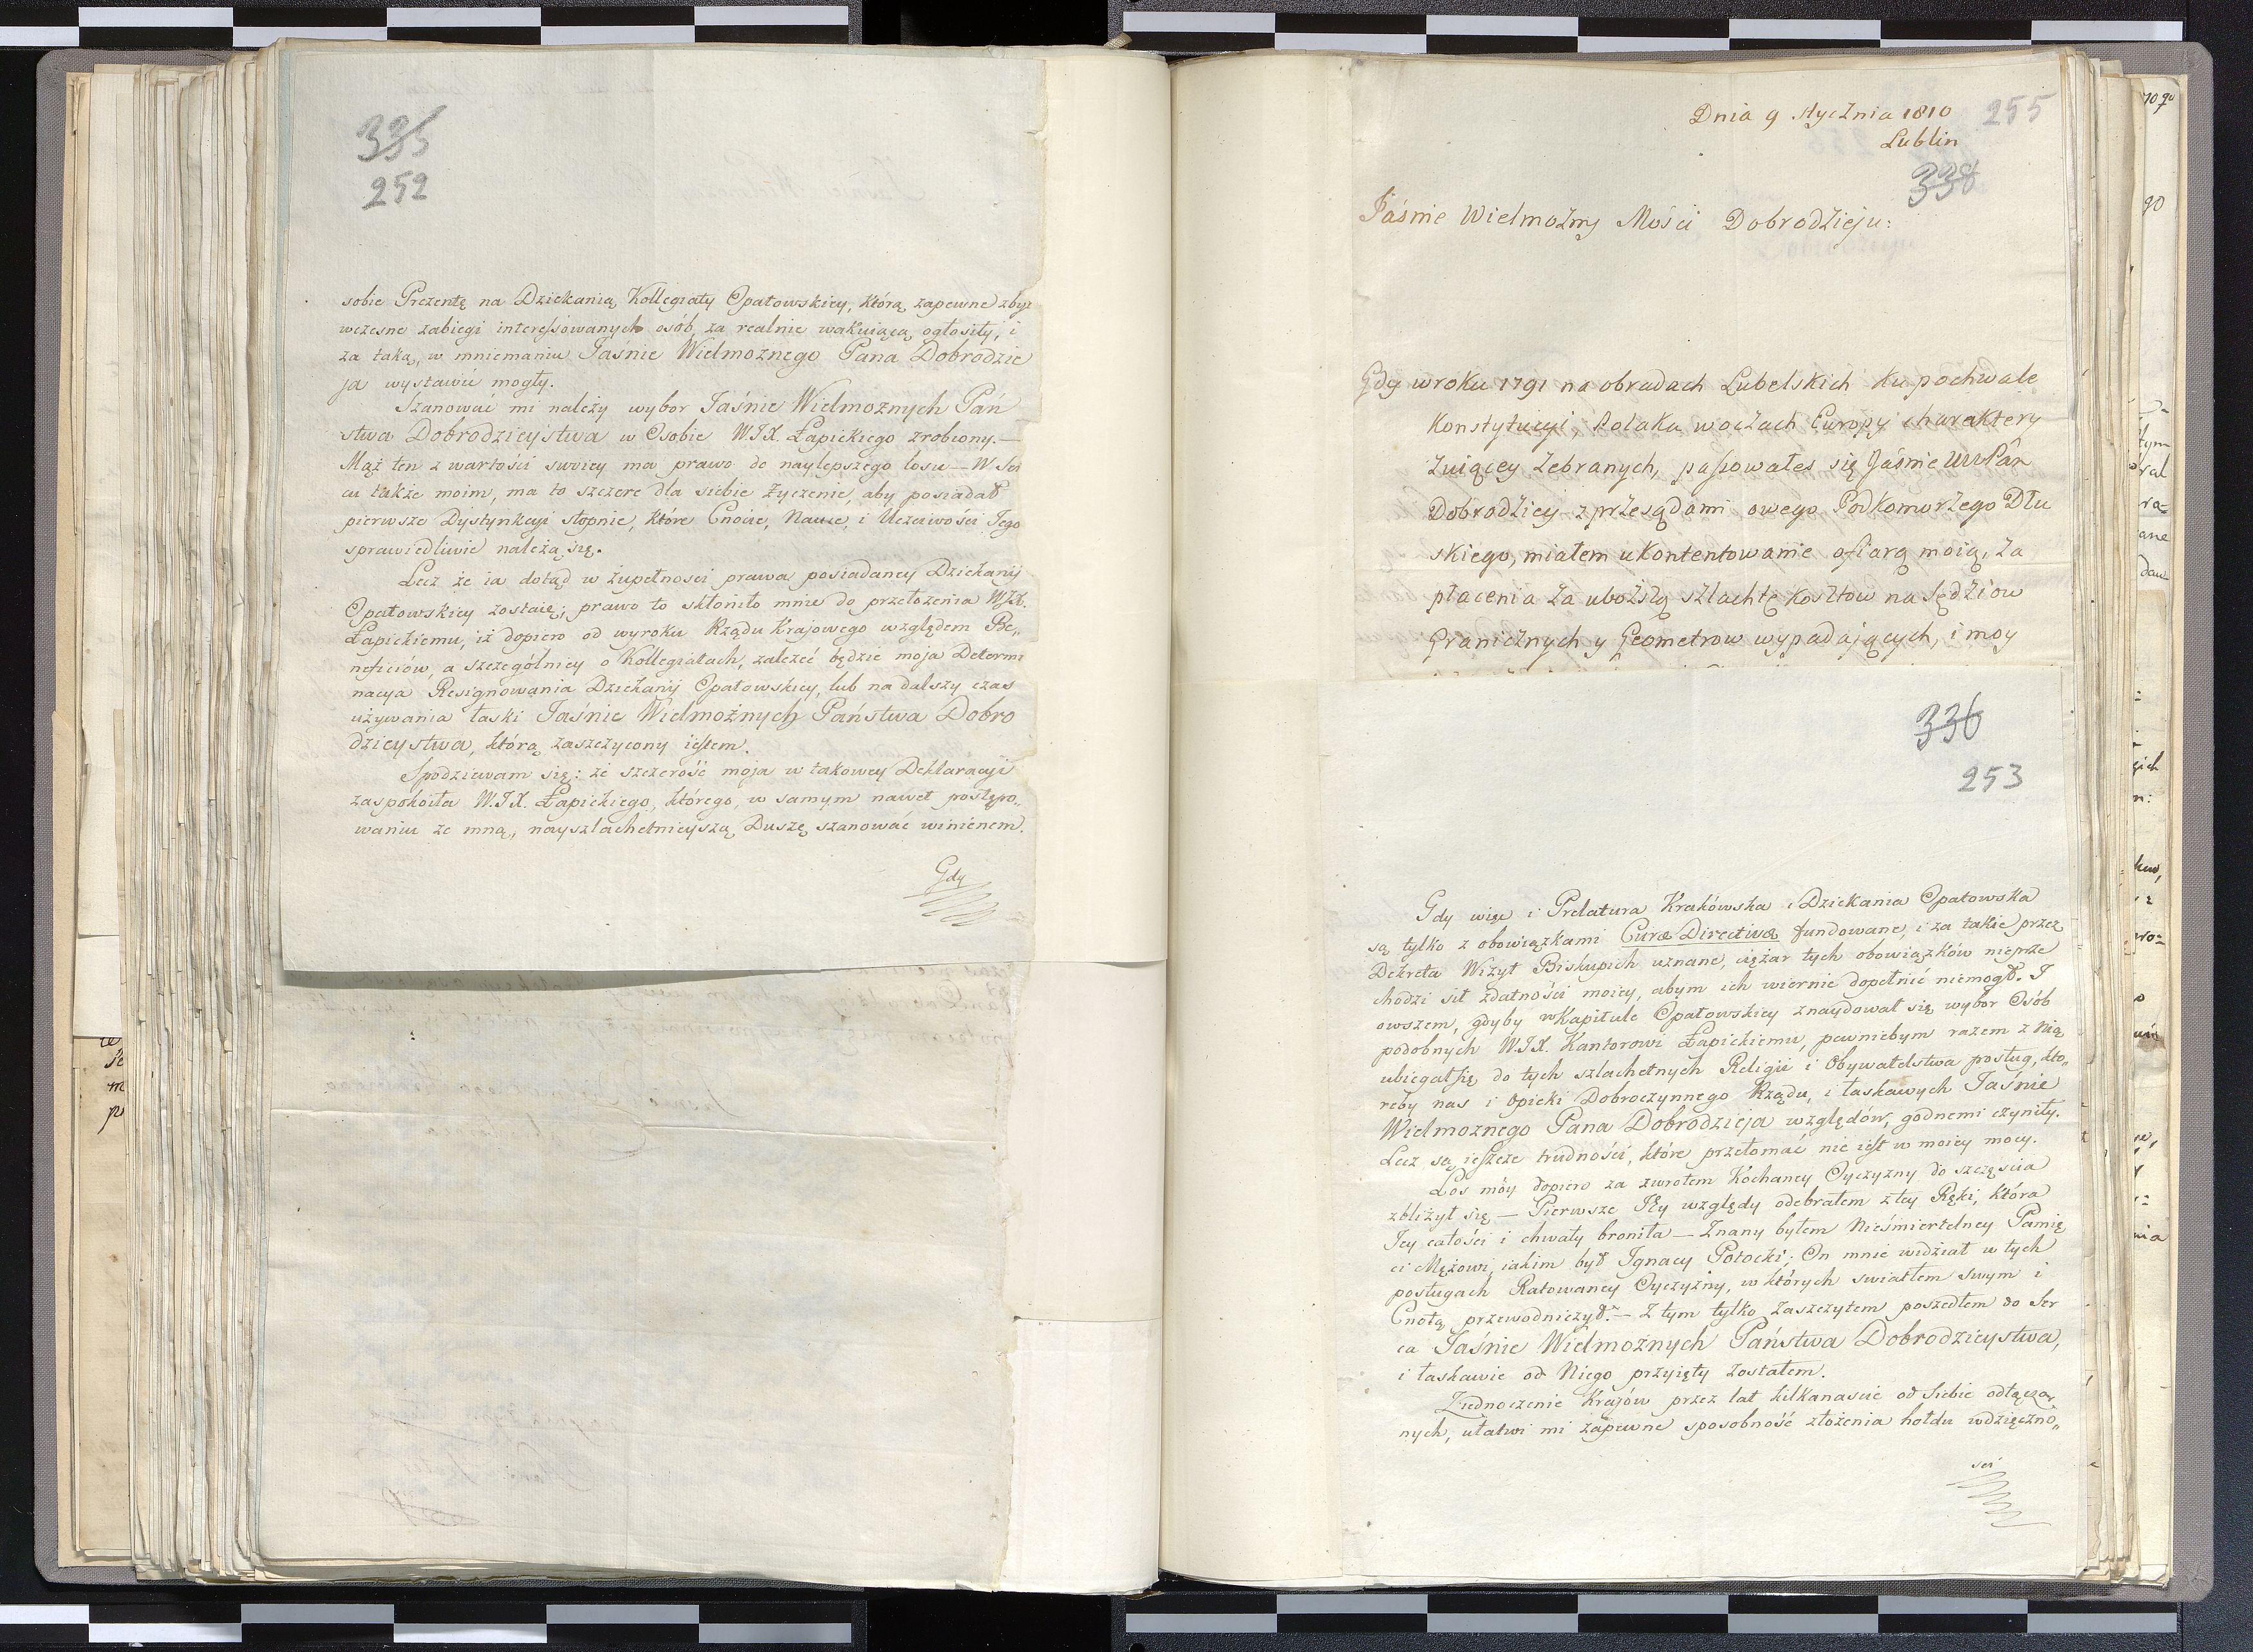 335
252
sobie Prezentę na Dziekanią Kollegiaty Opatowskiey, którą zapewne zbyt
wczesne zabiegi interessowanych osób za realnie wakuiącą ogłosiły, i
za taką, w mniemaniu Jaśnie Wielmoznego Pana Dobrodzie
ja wystawić mogły.
Szanować mi należy wybor Jaśnie Wielmoznych Pań
stwa Dobrodzieystwa w Osobie W.J.X. Łapickiego zrobiony.—
Mąż ten z wartości swoiey ma prawo do naylepszego losu — W Ser
cu także moim, ma to szczere dla siebie życzenie, aby posiadał
pierwsze Dystynkcyi stopnie, które Cnocie, Nauce, i Uczciwości Jego
sprawiedliwie należą się.
Lecz że ia dotąd w zupełności prawa posiadaney Dziekanij
Opatowskiey zostaię; prawo to skłoniło mnie do przełożenia W.J.X.
Łapickiemu, iż dopiero od wyroku Rządu Krajowego względem Be„
neficiów, a szczególniey o Kollegiatach, zależeć będzie moja Determi
nacya Resignowania Dziekanij Opatowskiey, lub na dalszy czas
używania łaski Jaśnie Wielmożnych Państwa Dobro
dzieystwa, którą zaszczycony iestem.
Spodziewam się: że szczerość moja w takowey Deklaracyi
zaspokoiła W.J.X. Łapickiego, którego, w samym nawet postępo„
waniu ze mną, nayszlachetnieyszą Duszę szanować winienem.
Gdy
255
Dnia 9 Stycznia 1810
Lublin
338
Jaśnie Wielmożny Mości Dobrodzieju:
Gdy w roku 1791 na obradach Lubelskich ku pochwale
Konstytucyi, Polaka w oczach Europy charaktery
zuiącey zebranych, passowałeś się Jaśnie WW Pan
Dobrodziey z przesądami owego Podkomorzego Dłu
skiego, miałem ukontentowanie ofiarą moią, za
płacenia za uboższą szlachtę kosztow na sędziow
Granicznych y Geometrow wypadających, i moy
336
253
Gdy więc i Prelatura Krakówska i Dziekania Opatowska
są tylko z obowiązkami Curæ Directivæ fundowane, i za takie przez
Dekreta Wizyt Biskupich uznane, ciężar tych obowiązków nieprze
chodzi sił zdatności moiey, abym ich wiernie dopełnić niemogł. I
owszem, gdyby w Kapitule Opatowskiey znaydował się wybór Osób
podobnych W.J.X. Kantorowi Łapickiemu, pewniebym razem z Nią
ubiegał się do tych szlachetnych Religii i Obywatelstwa posług, kto„
reby nas i Opieki Dobroczynnego Rządu, i łaskawych Jaśnie
Wielmoznego Pana Dobrodzieja względów, godnemi czyniły.
Lecz są ieszcze trudności, które przełomać nie iest w moiey mocy.
Los móy dopiero za zwrotem Kochaney Oyczyzny do szczęścia
zbliżył się — Pierwsze Jey względy odebrałem z tey Ręki, która
Jey całości i chwały broniła — Znany byłem Nieśmiertelney Pamię
ci Mężowi, iakim był Ignacy Potocki; On mnie widział w tych
posługach Ratowaney Oyczyzny, w których swiatłem swym i
Cnotą przewodniczył. — Z tym tylko zaszczytem poszedłem do Ser
ca Jaśnie Wielmożnych Państwa Dobrodzieystwa,
i łaskawie od Niego przyięty zostałem.
Ziednoczenie Krajów przez lat kilkanaście od siebie odłączo„
nych, ułatwi mi zapewne sposobność złożenia hołdu wdzięczno„
ści